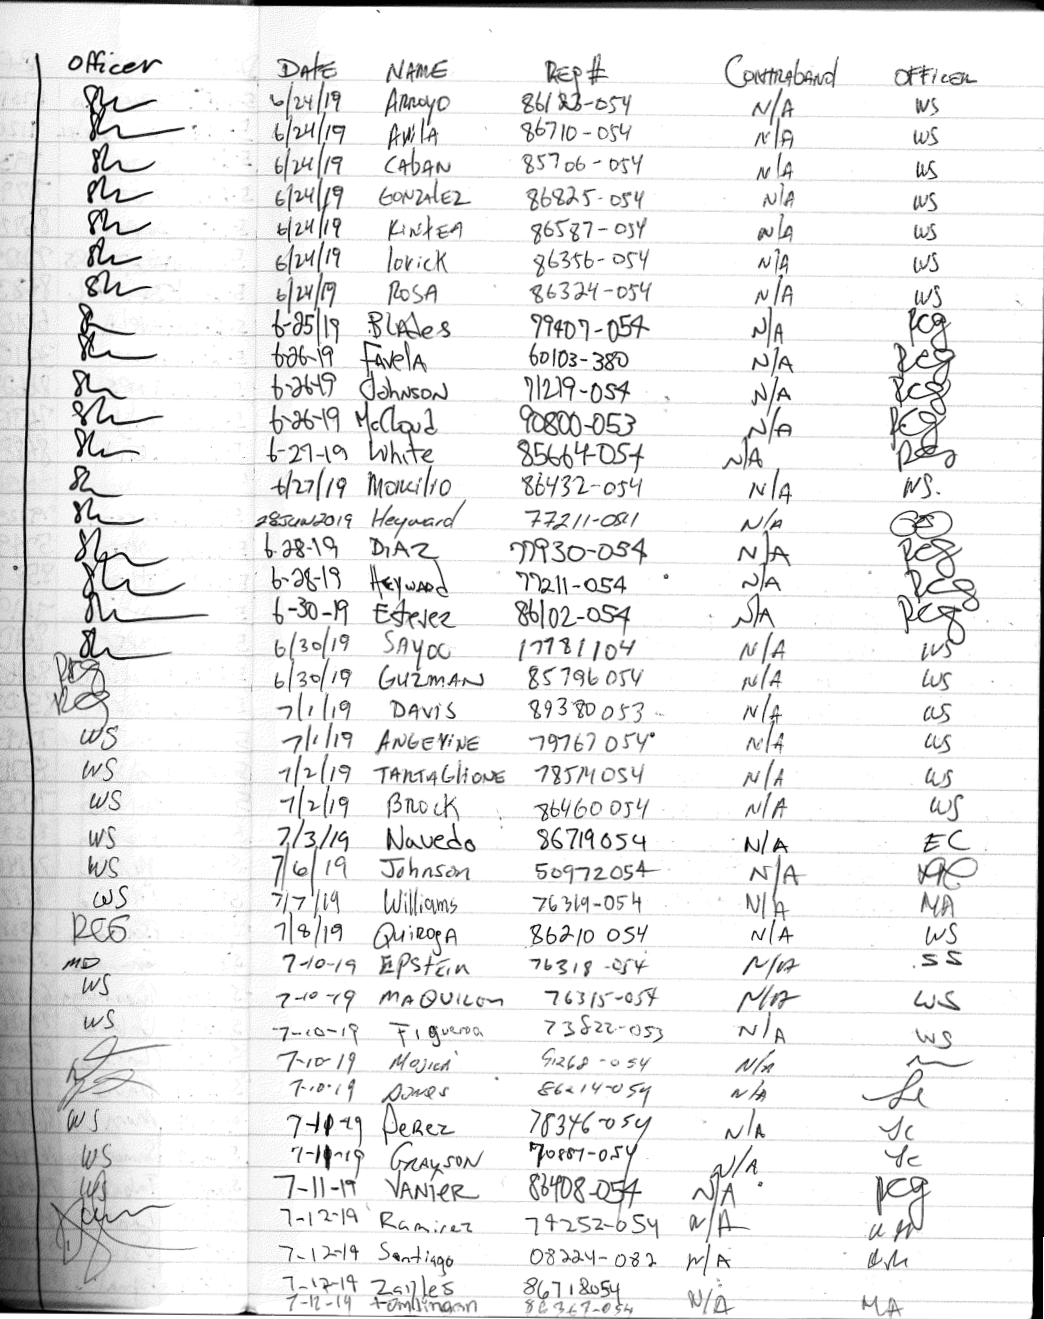 Officer DATE NAME REG# CONTRABAND OFFICER
6/24/19 ARROYO 86183-054 N/A WS
6/24/19 AVILA 86710-054 N/A WS
6/24/19 CABAN 85706-054 N/A WS
6/24/19 GONZALEZ 86825-054 N/A WS
6/24/19 86587-054 N/A WS
6/24/19 lorick 86356-054 N/A WS
6/24/19 ROSA 86324-054 N/A WS
6-25/19 BLAdes 79407-054 N/A RCg
6-26-19 FAvelA 60103-380 N/A RCg
6-26-19 Johnson 71219-054 N/A RCg
6-26-19 McCloud 90800-053 N/A RCg
6-27-19 White 85664-054 N/A RCg
6/27/19 86432-054 N/A WS.
28JUN2019 Heyward 77211-081 N/A
6-28-19 DiAZ 77930-054 N/A RCg
6-28-19 HEYWARd 77211-054 N/A RCg
6-30-19 Estevez 86102-054 N/A RCg
6/30/19 SAYOC 17781104 N/A WS
RCg 6/30/19 GUZMAN 85796054 N/A WS
RCg 7/1/19 DAVIS 89380053 N/A WS
WS 7/1/19 ANGEVINE 79767054 N/A WS
WS 7/2/19 TARTAGLIONE 78514054 N/A WS
WS 7/2/19 BROCK 86460054 N/A WS
WS 7/3/19 Navedo 86719054 N/A EC
WS 7/6/19 Johnson 50972054 N/A
WS 7/7/19 Williams 76319-054 N/A MA
RCG 7/8/19 QUIROGA 86210 054 N/A WS
MD 7-10-19 EPStein 76318-054 N/A SS
WS 7-10-19 MAQUILON 76315-054 N/A WS
WS 7-10-19 Figueroa 73822-053 N/A WS
7-10-19 Mojica 91268-054 N/A
7-10-19 86214-054 N/A
WS 7-10-19 Perez 78346-054 N/A
WS 7-11-19 GRAYSON 70887-054 N/A
WS 7-11-19 VANIER 83408-054 N/A RCg
7-12-19 Ramirez 74252-054 N/A
7-12-19 Santiago 08224-082 N/A
7-12-19 Zailles 86718054
7-12-19 Tomlinson 86367-054 N/A MA